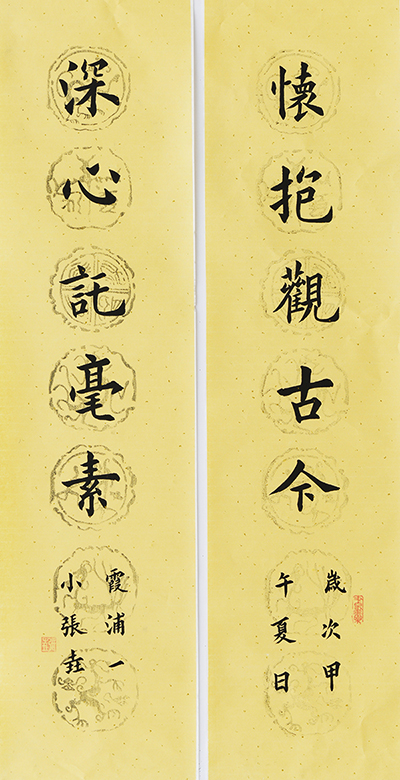 懷抱觀古今
嵗次甲
午夏日
深心託毫素
霞浦一
小張垚